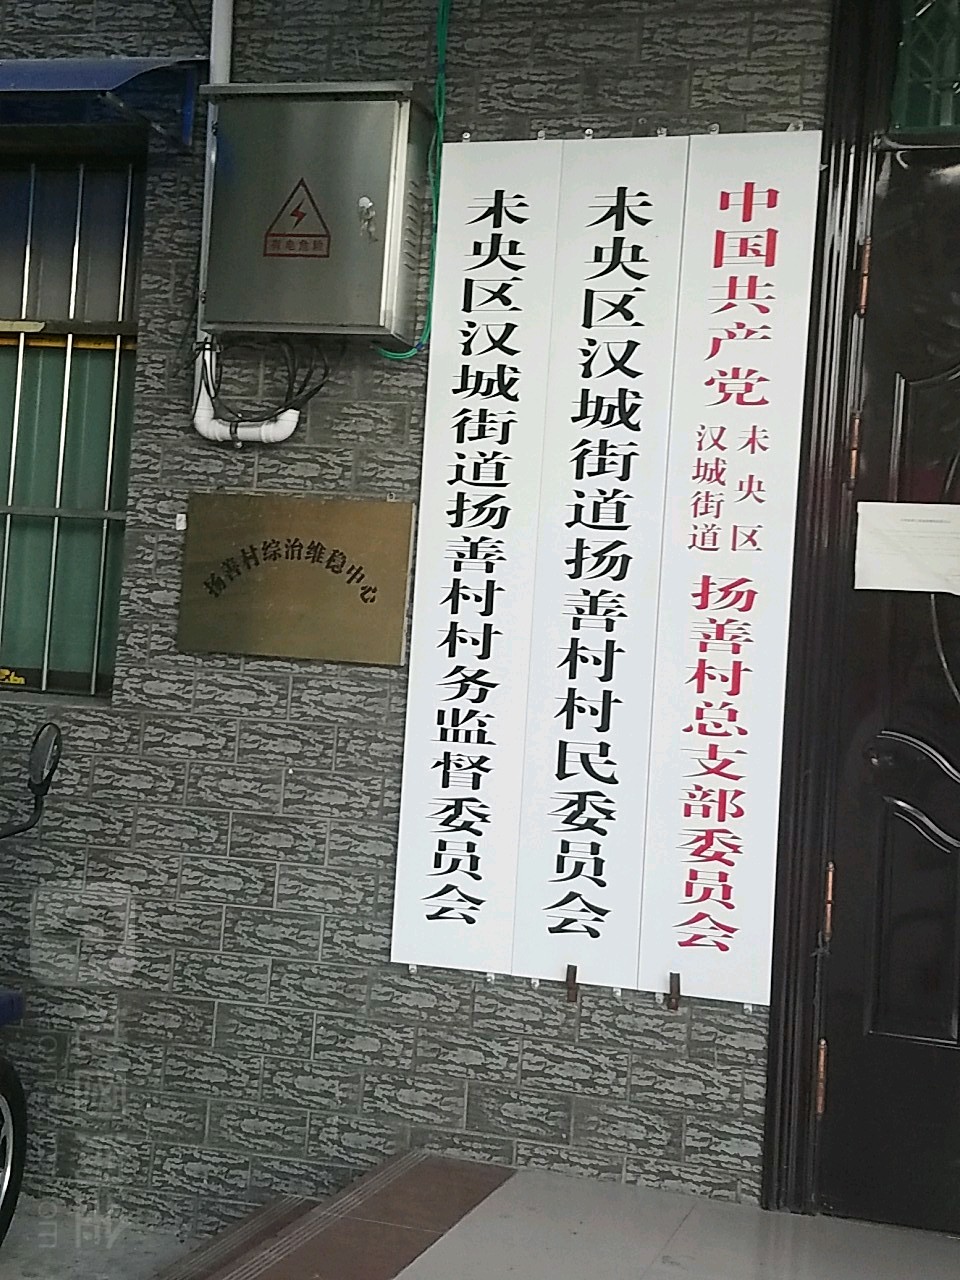 中国共产党
未央区
汉城街道
扬善村总支部委员会
未央区汉城街道扬善村村民委员会
未央区汉城街道扬善村村务监督委员会
有电危险
扬善村综治维稳中心